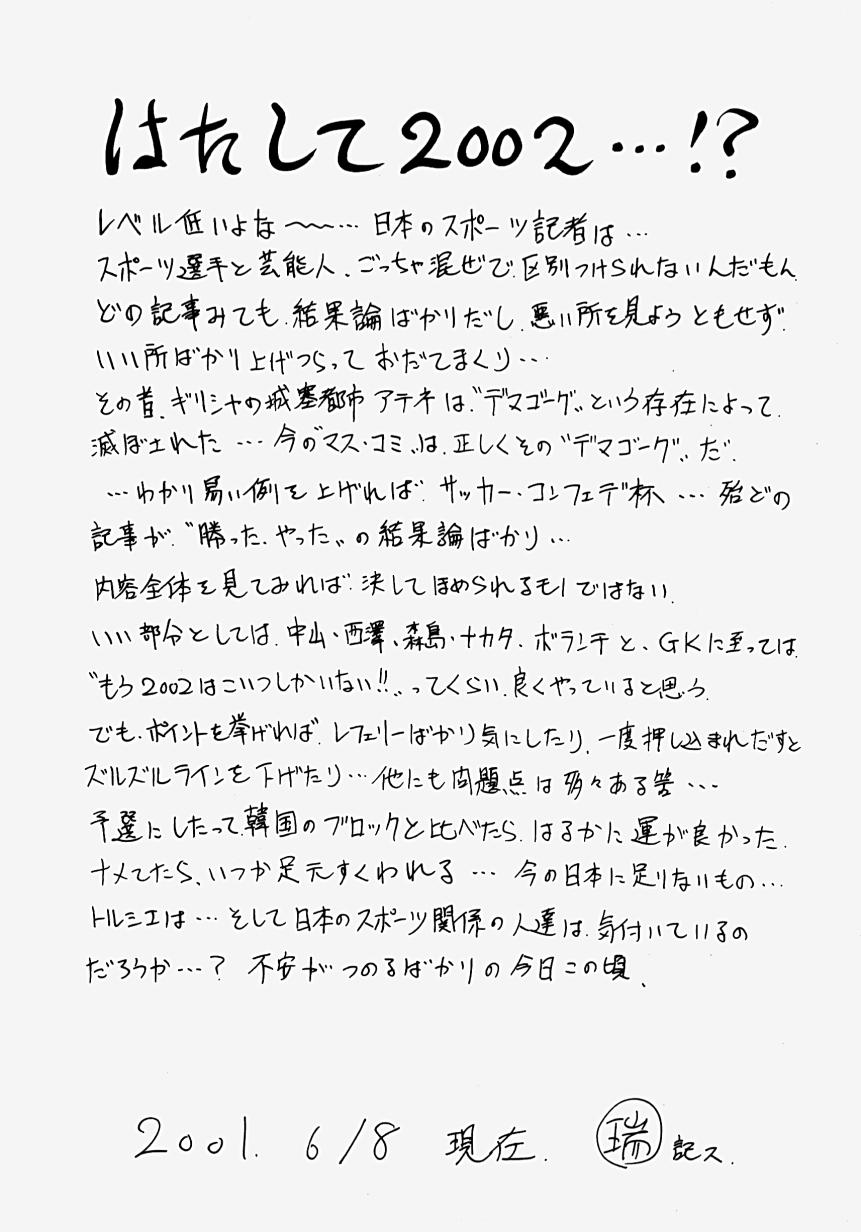 はたして2002…!?
レベル低いよな〜〜… 日本のスポーツ記者は…
スポーツ選手と芸能人、ごっちゃ混ぜで、区別つけられないんだもん
どの記事みても、結果論ばかりだし、悪い所を見ようともせず、
いい所ばかり上げつらって おだてまくり…
その昔、ギリシャの城塞都市 アテネは、“デマゴーグ„という存在によって、
滅ぼされた … 今の“マス・コミ„は、正しくその“デマゴーグ„だ、
…わかり易い例を上げれば、サッカー・コンフェデ杯 … 殆どの
記事が、“勝った、やった„の結果論ばかり…
内容全体を見てみれば、決してほめられるモノではない、
いい部分としては、中山・西澤、森島・ナカタ、ボランチと、GKに至っては、
“もう2002はこいつしかいない!!„ってくらい、良くやっていると思う、
でも、ポイントを挙げれば、レフェリーばかり気にしたり、一度押し込まれだすと
ズルズルラインを下げたり…他にも問題点は多々ある筈…
予選にしたって、韓国のブロックと比べたら、はるかに運が良かった、
ナメてたら、いつか足元すくわれる … 今の日本に足りないもの…
トルシエは…そして日本のスポーツ関係の人達は、気付いているの
だろうか…? 不安がつのるばかりの今日この頃、
2001. 6/8 現在. 瑞 記ス.